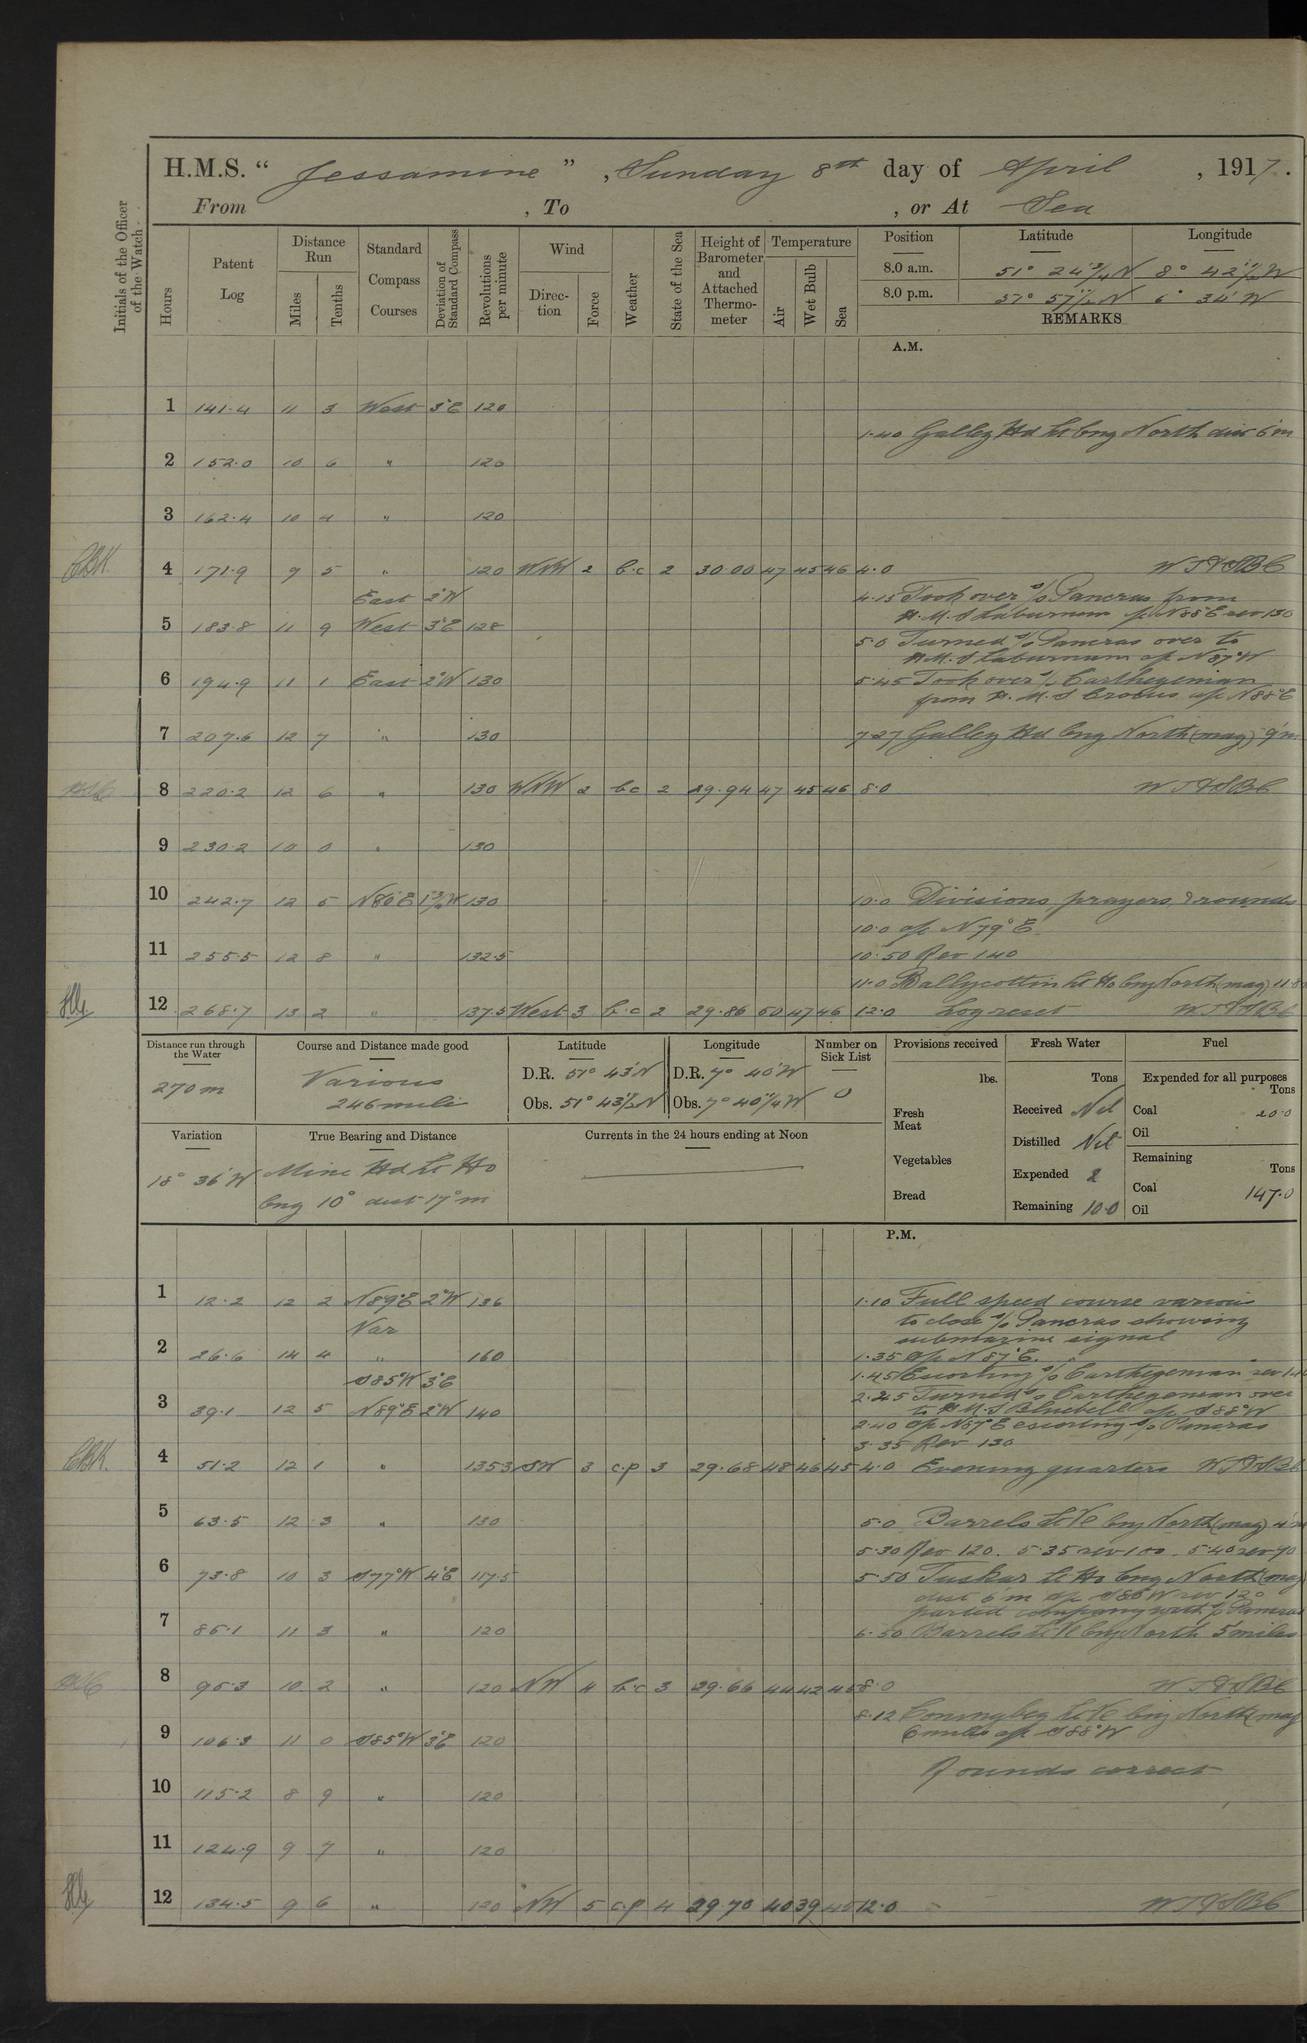 H.M.S. “ Jessamine ” , Sunday 8th day of April , 1917 .
From , To , or At Sea
Initials of the Officer of the Watch
Hours
Patent Log
Distance Run
Miles
Tenths
Standard Compass Courses
Deviation of Standard Compass
Revolutions per minute
Wind
Direc-tion
Force
Weather
State of the Sea
Height of Barometer and Attached Thermo-meter
Temperature
Air
Wet Bulb
Sea
Position Latitude Longitude
8.0 a.m. 51° 24¾' N 8° 42½' W
8.0 p.m. 6° 34' W
REMARKS
A.M.
1 141.4 11 3 West 3°E 120
1.40 Galley Hd Lt bng North dist 6'm
2 152.0 10 6 " 120
3 162.4 10 4 " 120
4 171.9 9 5 " 120 WNW 2 b.c 2 30.00 47 45 46 4.0
East 2°W
4.15 Took over s/s Pancras from
H.M.S Laburnum a/c N88°E rev 130
5 183.8 11 9 West 3°E 128
5.0 Turned s/s Pancras over to
H.M.S Laburnum a/c N87°W
6 194.9 11 1 East 2°W 130
5.45 Took over s/s Carthegenian
from H.M.S Crocus a/c N88°E
7 207.6 12 7 " 130
7.27 Galley Hd bng North (mag) 9'm
8 220.2 12 6 " 130 WNW 2 b.c 2 29.94 47 45 46 8.0
9 230.2 10 0 " 130
10 242.7 12 5 N86°E 1¾°W 130
10.0 Divisions, prayers, & rounds
10.0 a/c N79°E
11 255.5 12 8 " 132.5
10.50 Rev 140
11.0 Ballycottin Lt Ho bng North (mag) 11.8
12 268.7 13 2 " 137.5 West 3 b.c 2 29.86 50 47 46 12.0 Log reset
Distance run through the Water
270 m
Course and Distance made good
Various
246 miles
Latitude
D.R. 51° 43' N
Obs. 51° 43½' N
Longitude
D.R. 7° 40' W
Obs. 7° 40¼' W
Number on Sick List
0
Variation
18° 36' W
True Bearing and Distance
Mine Hd Lt Ho
bng 10° dist 17'm
Currents in the 24 hours ending at Noon
Provisions received
lbs.
Fresh Meat
Vegetables
Bread
Fresh Water
Tons
Received Nil
Distilled Nil
Expended 2
Remaining 10.0
Fuel
Expended for all purposes
Tons
Coal 20.0
Oil
Remaining
Tons
Coal 147.0
Oil
P.M.
1 12.2 12 2 N89°E 2°W 136
1.10 Full speed course various
to close s/s Pancras showing
submarine signal
Var
2 26.6 14 4 " 160
1.35 a/c N87°E.
1.45 Escorting s/s Carthegenian rev 140
S85°W 3°E
2.25 Turned s/s Carthegenian over
to H.M.S Bluebell a/c S88°W
3 39.1 12 5 N89°E 2°W 140
2.40 a/c N87°E escorting s/s Pancras
3.35 Rev 130
4 51.2 12 1 " 135.3 SW 3 c.p 3 29.68 48 46 45 4.0 Evening quarters
5 63.5 12 3 " 130
5.0 Barrels Lt Ve bng North (mag)
5.30 Rev 120. 5.35 rev 100. 5.40 rev 90
6 73.8 10 3 S77°W 4°E 117.5
5.50 Tuskar Lt Ho bng North (mag)
dist 6'm a/c S86°W rev 120
parted company with s/s Pancras
7 85.1 11 3 " 120
6.50 Barrels Lt Ve bng North 5 miles
8 95.3 10 2 " 120 NW 4 b.c 3 29.66 44 42 45 8.0
8.12 Coningbeg Lt Ve bng North (mag
6 miles a/c S88°W
9 106.3 11 0 S85°W 3°E 120
Rounds correct
10 115.2 8 9 " 120
11 124.9 9 7 " 120
12 134.5 9 6 " 120 NW 5 c.p 4 29.70 40 39 45 12.0